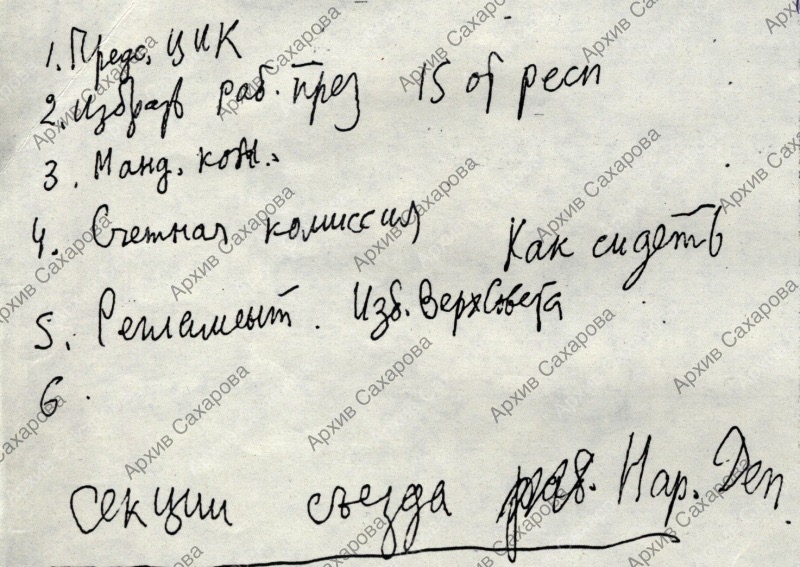 1. Предс. ЦИК
2. Избрать раб. през 15 от респ
3. Манд. ком.
4. Счетная комиссия
Как сидеть
5. Регламент. Изб. ВерхСовета
6.
Секции съезда раб. Нар. Деп.
Архив Сахарова